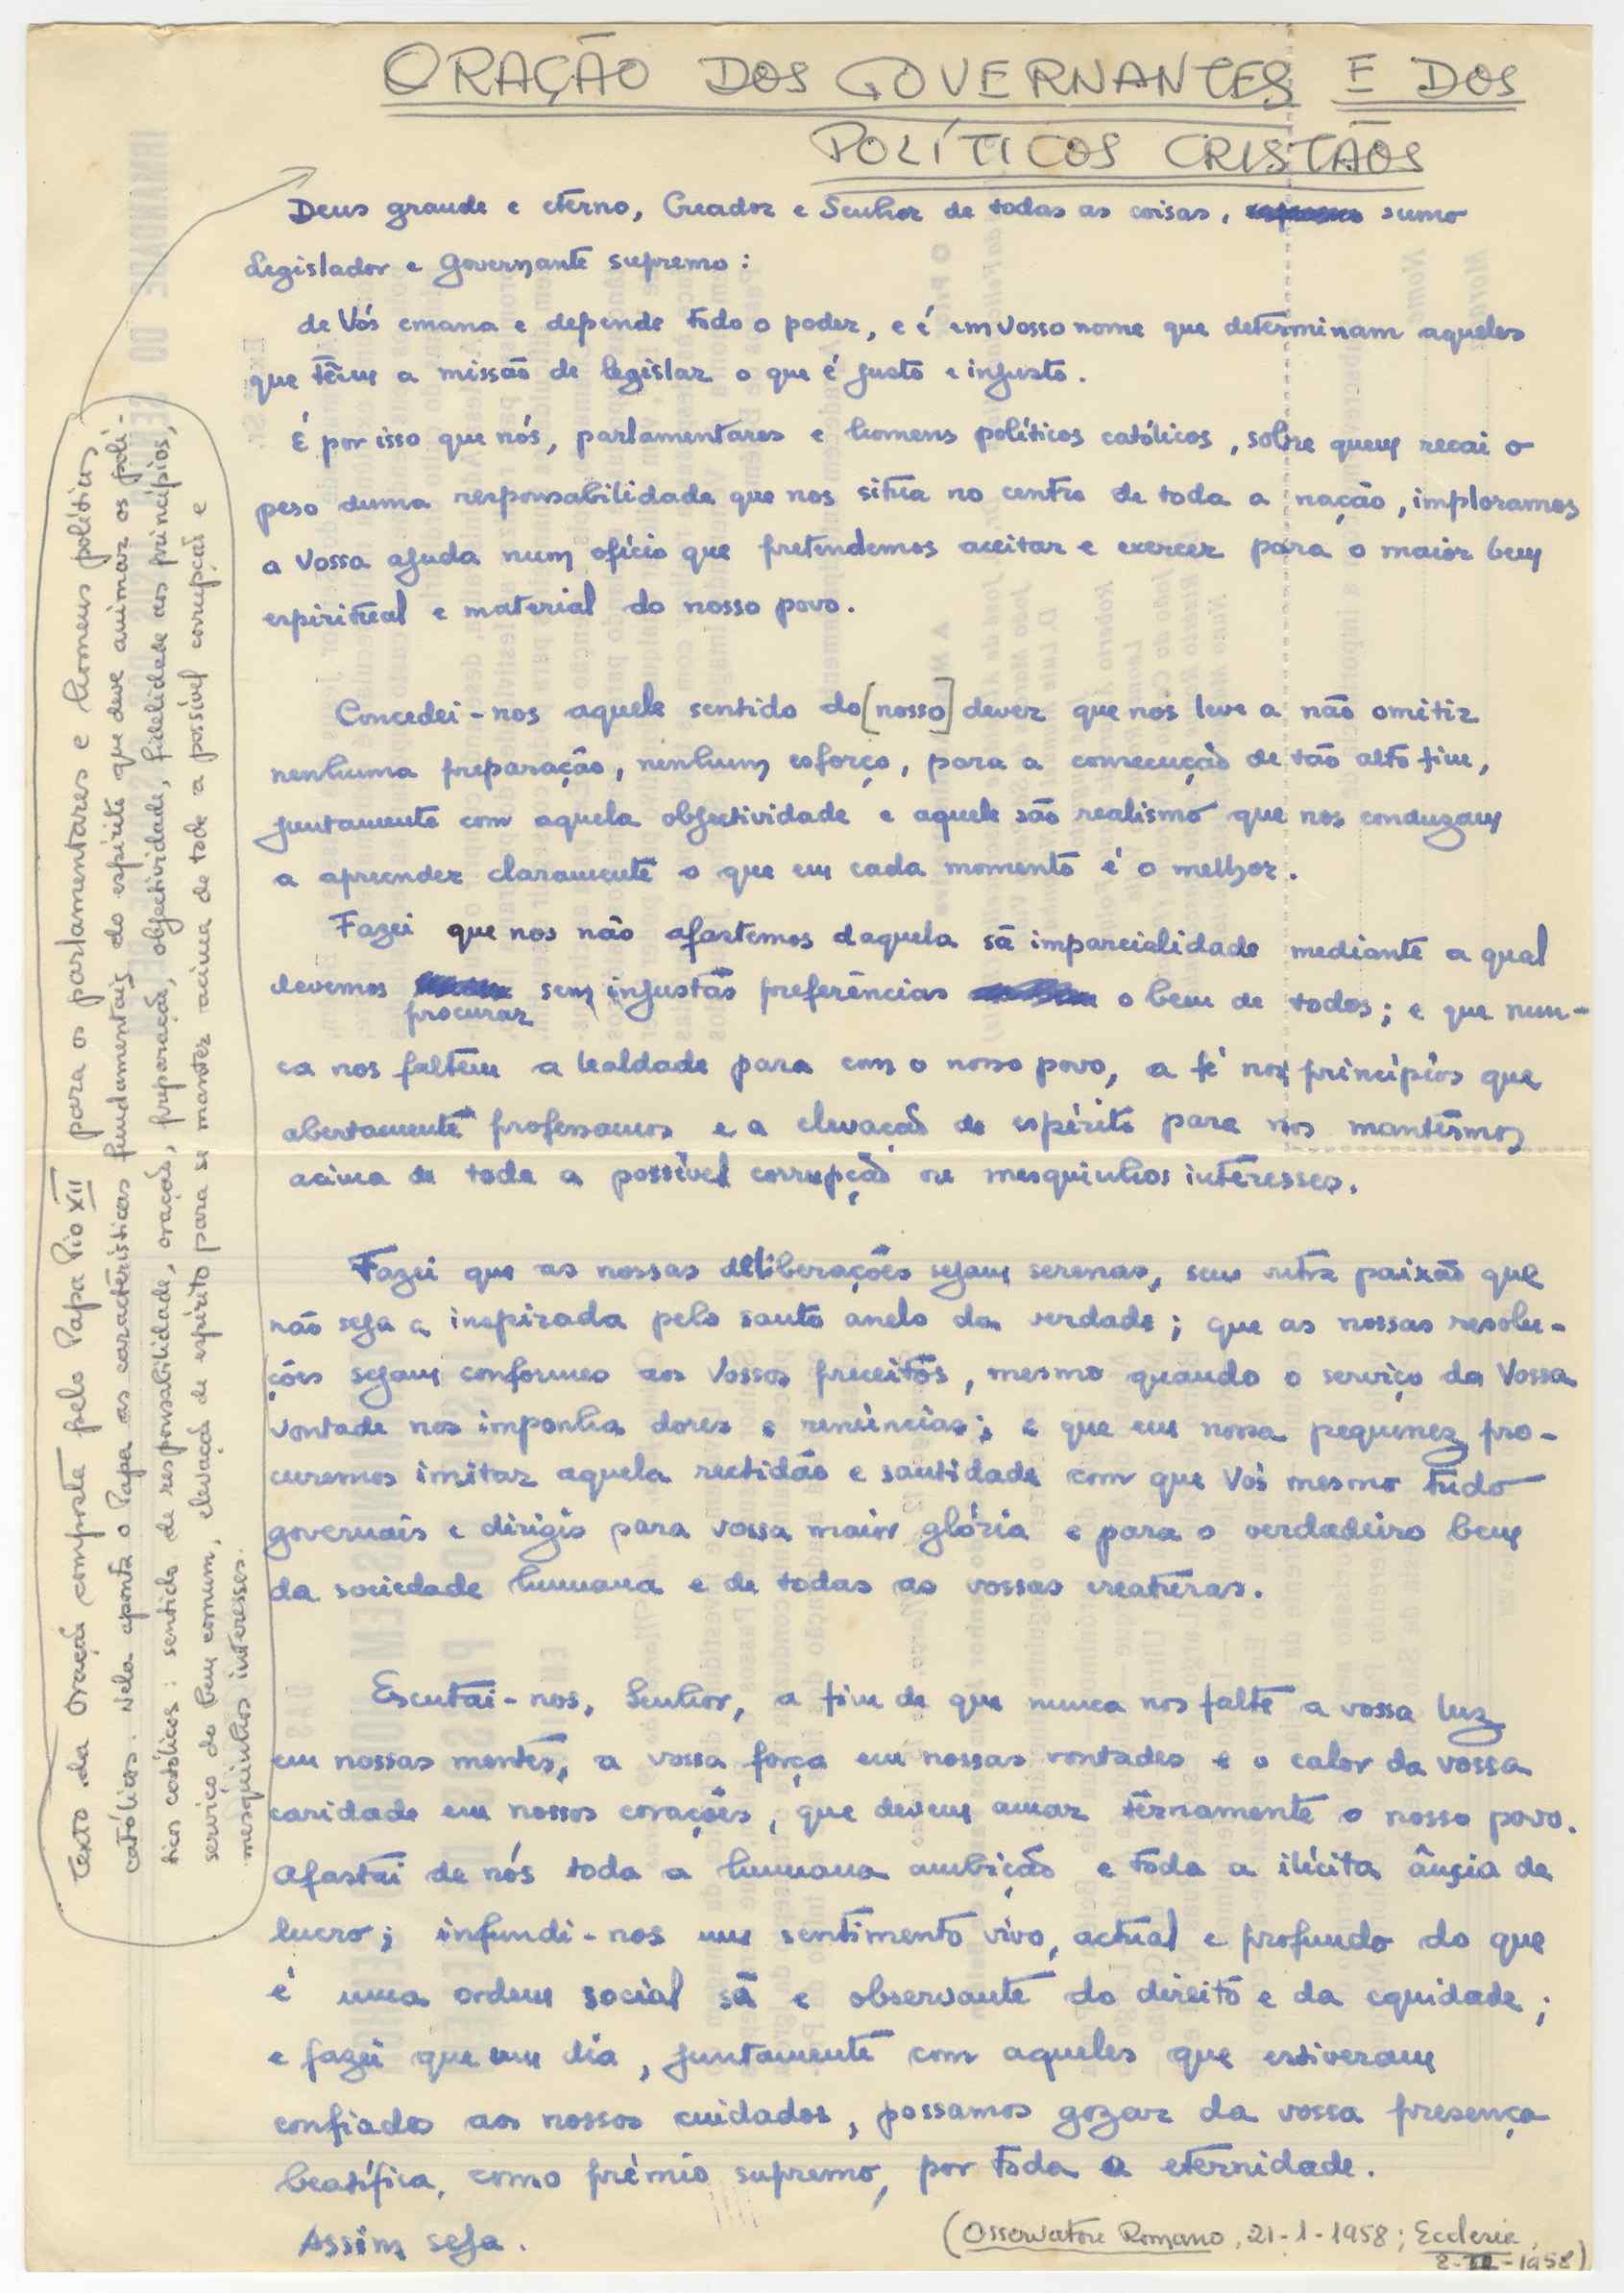 ORAÇÃO DOS GOVERNANTES E DOS
POLÍTICOS CRISTÃOS
Deus grande e eterno, Creador e Senhor de todas as coisas, sumo
Legislador e Governante supremo:
de Vós emana e depende todo o poder, e é em Vosso nome que determinam aqueles
que têm a missão de legislar o que é justo e injusto.
É por isso que nós, parlamentares e homens políticos católicos, sobre quem recai o
peso duma responsabilidade que nos situa no centro de toda a nação, imploramos
a Vossa ajuda num ofício que pretendemos aceitar e exercer para o maior bem
espiritual e material do nosso povo.
Concedei-nos aquele sentido do [nosso] dever que nos leve a não omitir
nenhuma preparação, nenhum esforço, para a consecução de tão alto fim,
juntamente com aquela objectividade e aquele são realismo que nos conduzam
a apreender claramente o que em cada momento é o melhor.
Fazei que nos não afastemos daquela sã imparcialidade mediante a qual
devemos procurar sem injustas preferências o bem de todos; e que nun-
ca nos faltem a lealdade para com o nosso povo, a fé nos princípios que
abertamente professamos e a elevação de espírito para nos mantermos
acima de toda a possível corrupção ou mesquinhos interesses.
Fazei que as nossas deliberações sejam serenas, sem outra paixão que
não seja a inspirada pelo santo anelo da verdade; que as nossas resolu-
ções sejam conformes aos Vossos preceitos, mesmo quando o serviço da Vossa
vontade nos imponha dores e renúncias; e que em nossa pequenez pro-
curemos imitar aquela rectidão e santidade com que Vós mesmo tudo
governais e dirigis para vossa maior glória e para o verdadeiro bem
da sociedade humana e de todas as vossas creaturas.
Escutai-nos, Senhor, a fim de que nunca nos falte a vossa luz
em nossas mentes, a vossa força em nossas vontades e o calor da vossa
caridade em nossos corações, que devem amar ternamente o nosso povo.
Afastai de nós toda a humana ambição e toda a ilícita ânsia de
lucro; infundi-nos um sentimento vivo, actual e profundo do que
é uma ordem social sã e observante do direito e da equidade;
e fazei que um dia, juntamente com aqueles que estiveram
confiados aos nossos cuidados, possamos gozar da vossa presença
beatífica, como prémio supremo, por toda a eternidade.
Assim seja.
(Osservatore Romano, 21-1-1958; Ecclesia,
1958)
Texto da oração composta pelo Papa Pio XII para os parlamentares e homens políticos
católicos. Nela aponta o Papa as características fundamentais do espírito que deve animar os polí-
ticos católicos: sentido de responsabilidade, oração, preparação, objectividade, fidelidade aos princípios,
serviço do bem comum, elevação de espírito para se manter acima de toda a possível corrupção e
mesquinhos interesses.